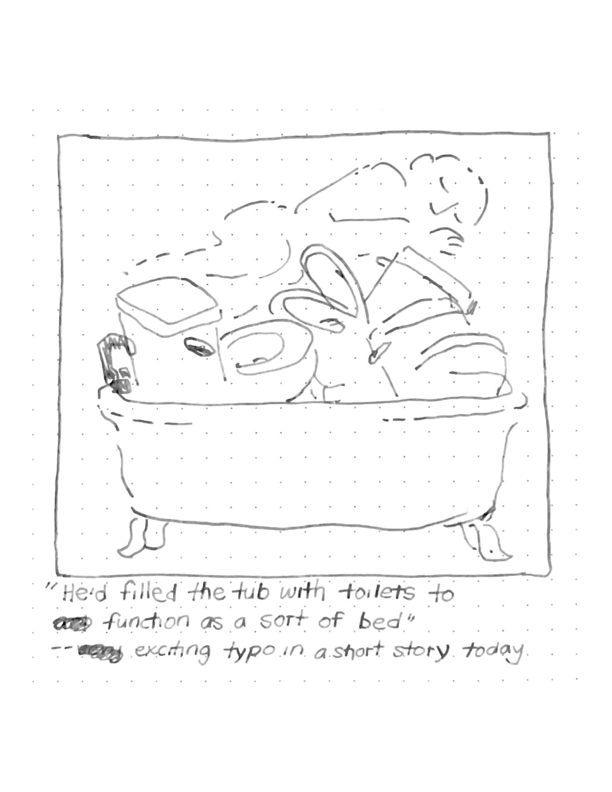 "He'd filled the tub with toilets to
function as a sort of bed"
-- exciting typo in a short story today.